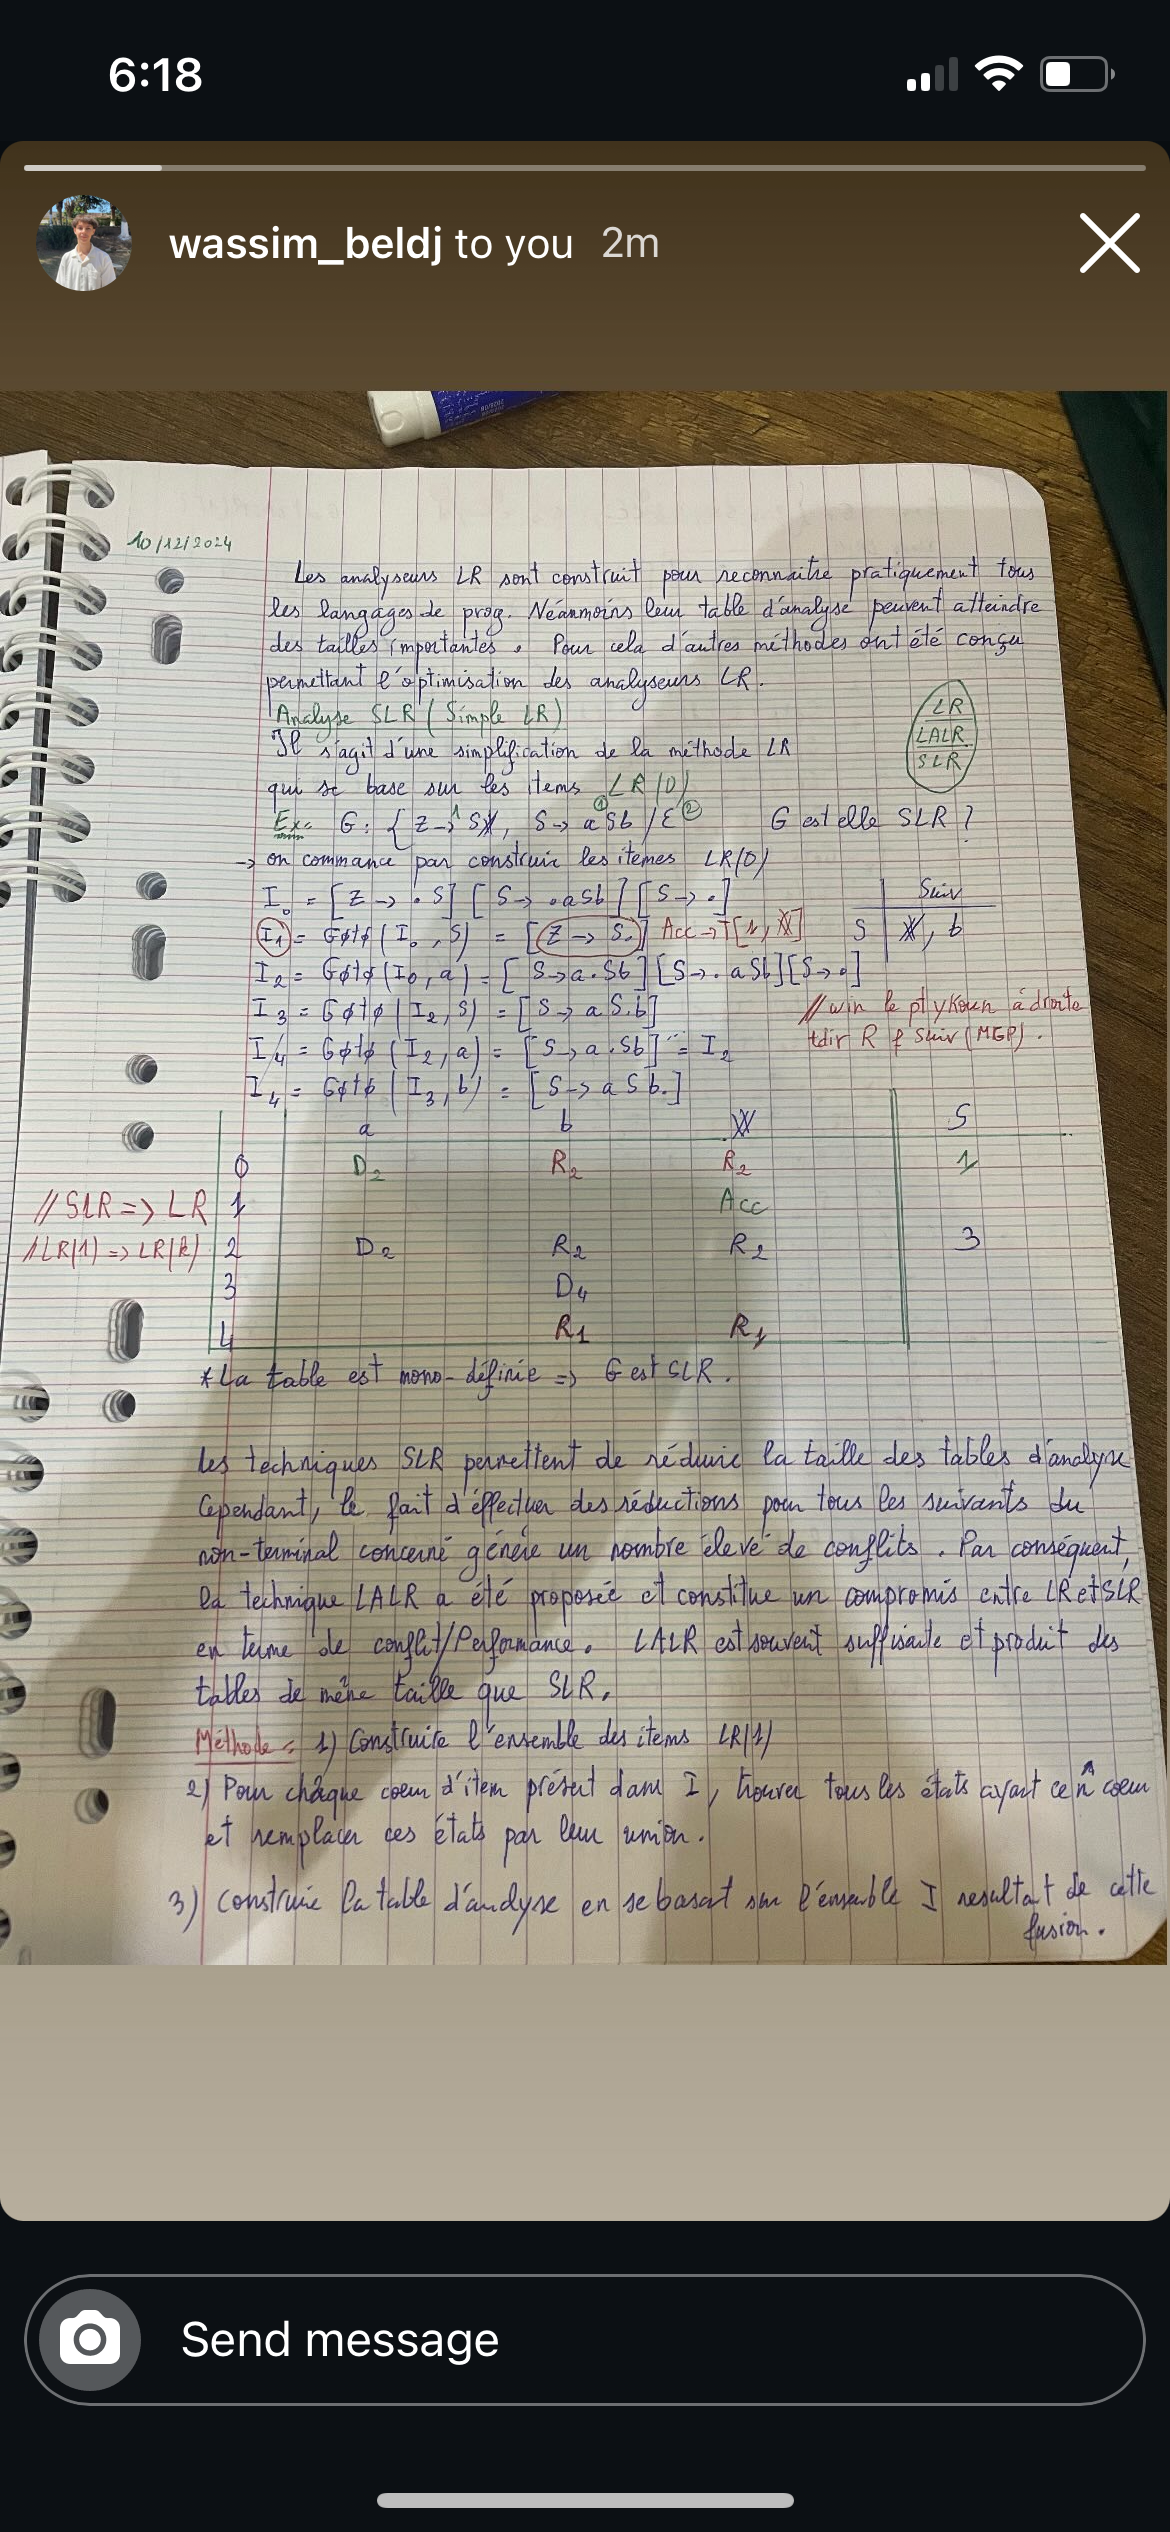 6:18
wassim_beldj to you 2m
10/12/2024
Les analyseurs LR sont construit pour reconnaitre pratiquement tous
les langages de prog. Néanmoins leur table d'analyse peuvent atteindre
des tailles importantes. Pour cela d'autres méthodes ont été conçu
permettant l'optimisation des analyseurs LR.
Analyse SLR (Simple LR)
LR
LALR
SLR
Il s'agit d'une simplification de la méthode LR
qui se base sur les items LR(0)
Ex: G: { Z → S#, S → aSb / ε G est elle SLR ?
→ on commance par construire les itemes LR(0)
I0 = [Z → .S] [S → .aSb] [S → .]
Suiv
I1 = Goto (I0, S) = [Z → S.] Acc → T[1, #]
S #, b
I2 = Goto (I0, a) = [S → a.Sb] [S → .aSb] [S → .]
I3 = Goto (I2, S) = [S → aS.b]
// win le pt ykoun à droite
tdir R f Suiv (MGP).
I4 = Goto (I2, a) = [S → a.Sb] = I2
I4 = Goto (I3, b) = [S → aSb.]
a b # S
0 D2 R2 R2 1
// SLR => LR 1 Acc
// LR(1) => LR(k) 2 D2 R2 R2 3
3 D4
4 R1 R1
* La table est mono-définie => G est SLR.
Les techniques SLR permettent de réduire la taille des tables d'analyse
Cependant, le fait d'éffectuer des réductions pour tous les suivants du
non-terminal concerné génère un nombre élevé de conflits. Par conséquent,
la technique LALR a été proposée et constitue un compromis entre LR et SLR
en terme de conflit/Performance. LALR est souvent suffisante et produit des
tables de même taille que SLR.
Méthode: 1) Construire l'ensemble des items LR(1)
2) Pour chaque coeur d'item présent dans I, trouver tous les états ayant ce m̂ coeur
et remplacer ces états par leur union.
3) Construire la table d'analyse en se basant sur l'ensemble I resultat de cette
fusion.
Send message